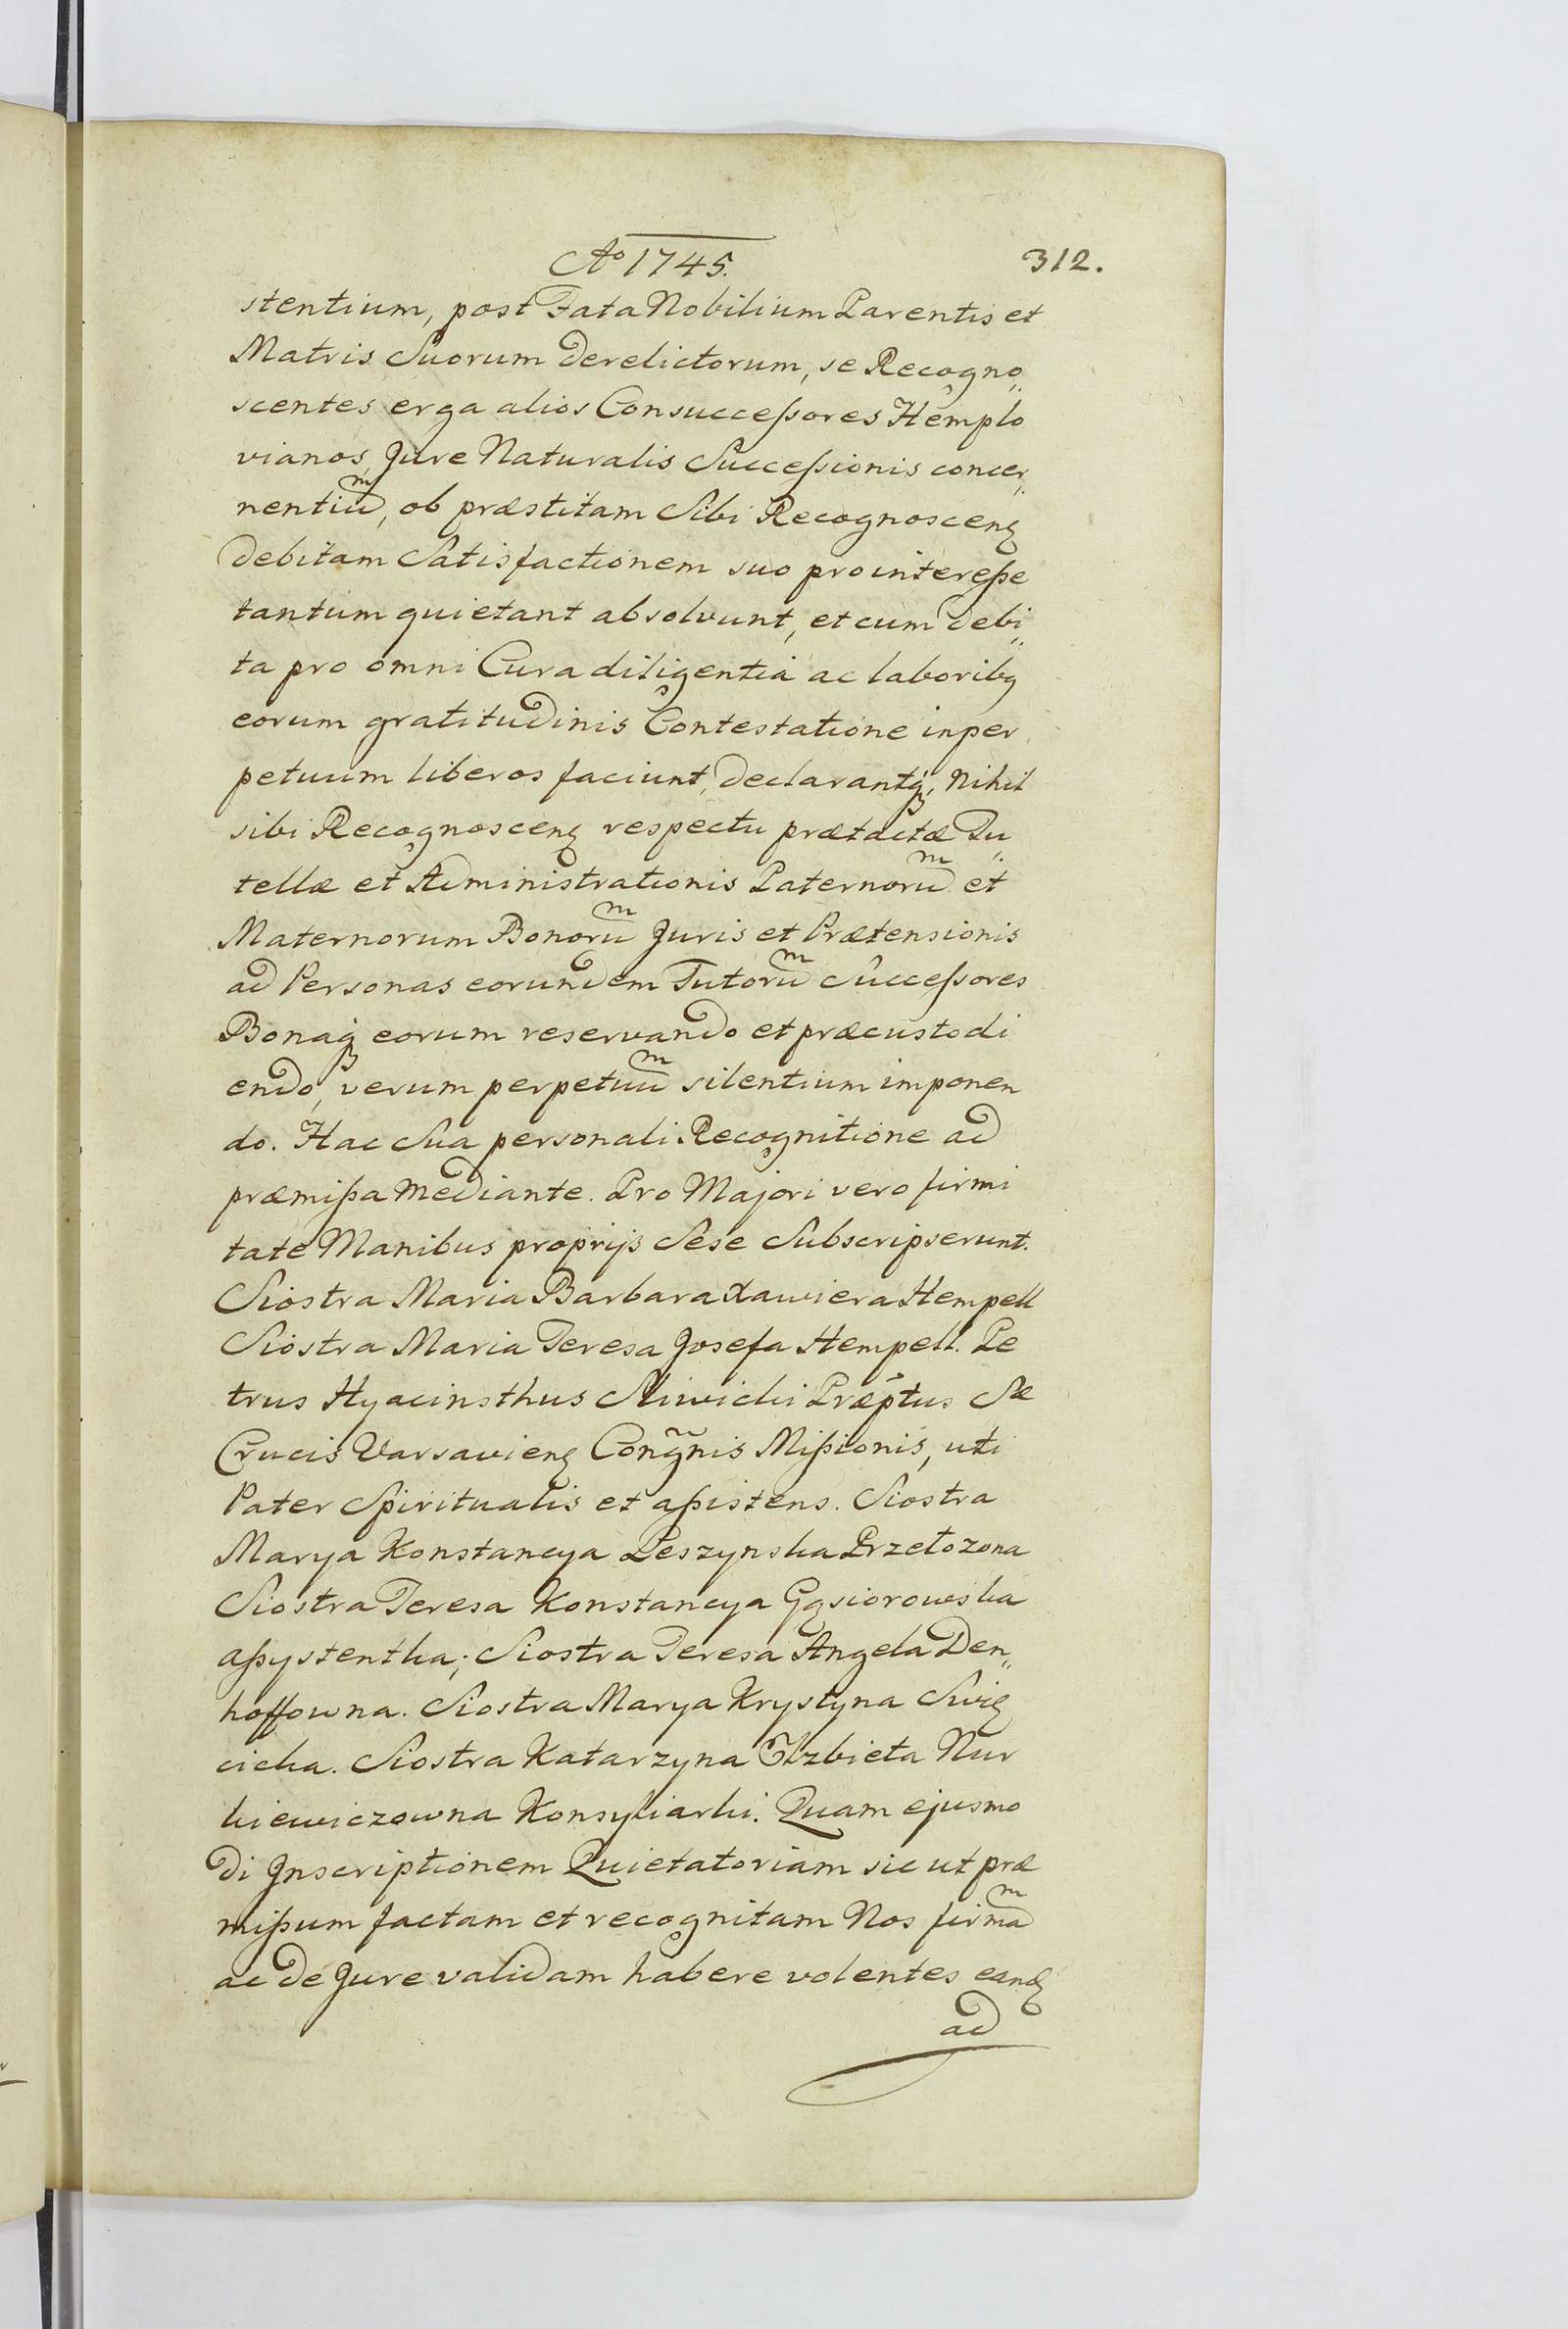 Aº 1745.
312.
stentium, post Fata Nobilium Parentis et
Matris Suorum derelictorum, se Recogno„
scentes erga alios Consuccessores Hemplo
vianos, Jure Naturalis Successionis concer„
nentiuᵐ, ob præstitam Sibi Recognoscenꝫ
debitam Satisfactionem suo pro interesse
tantum quietant absolvunt, et cum debi„
ta pro omni Cura diligentiá ac laboribꝫ
eorum gratitudinis Contestatione in per
petuum liberos faciunt, declarantqꝫ, Nihil
sibi Recognoscenꝫ respectu prætactæ Tu„
tellæ et Administrationis Paternoruᵐ et
Maternorum Bonoruᵐ Juris et Prætensionis
ad Personas eorundem Tutoruᵐ Successores
Bonaqꝫ eorum reservando et præcustodi
endo, verum perpetuuᵐ silentium imponen
do. Hac Sua personali Recognitione ad
præmissa mediante. Pro Majori vero firmi
tate Manibus proprijs Sese Subscripserunt.
Siostra Maria Barbara Xawiera Hempell
Siostra Maria Teresa Josefa Hempell. Pe
trus Hyacinsthus Sliwicki Præp̃tus Sæ
Crucis Varsavienꝫ Congñis Missionis, uti
Pater Spiritualis et assistens. Siostra
Marya Konstancya Leszynska Przełozona
Siostra Teresa Konstancya Gąsiorowska
assystentka; Siostra Teresa Angela Den„
hoffowna. Siostra Marya Krystyna Swię
cicka. Siostra Katarzyna Elzbieta Nur
kiewiczowna Konsyliarki. Quam ejusmo
di Inscriptionem Quietatoriam sic ut præ
missum factam et recognitam Nos firmaᵐ
ac de Jure validam habere volentes eandꝫ
ad